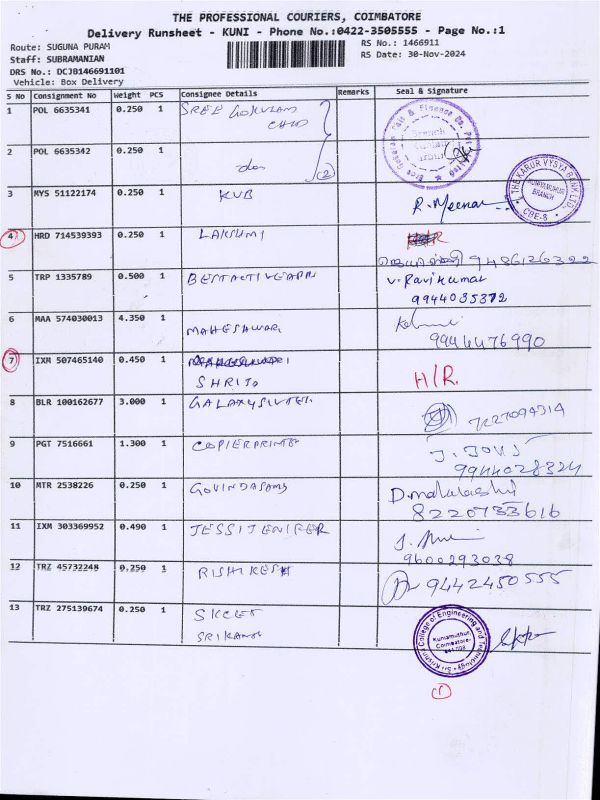 THE PROFESSIONAL COURIERS, COIMBATORE
Delivery Runsheet - KUNI - Phone No.:0422-3505555 - Page No.:1
Route: SUGUNA PURAM
RS No.: 1466911
Staff: SUBRAMANIAN
RS Date: 30-Nov-2024
DRS No.: DCJB146691101
Vehicle: Box Delivery
S No Consignment No Weight PCS Consignee Details Remarks Seal & Signature
1 POL 6635341 0.250 1 SREE GOKULAM
2 POL 6635342 0.250 1 do (2)
3 MYS 51122174 0.250 1 KVB R. Meena
THE KARUR VYSYA BANK LTD.
KUNIYAMUTHUR
BRANCH
CBE-8
4 HRD 714539393 0.250 1 LAKSHMI
9486126322
5 TRP 1335789 0.500 1 V. Ravikumar
9944035372
6 MAA 574030013 4.350 1 MAHESHWARI
9944476990
7 IXM 507465140 0.450 1 H/R.
8 BLR 100162677 3.000 1
9 PGT 7516661 1.300 1 COPIERPRINTE
9944028324
10 MTR 2538226 0.250 1 GOVINDASAMY
8220733616
11 IXM 303369952 0.490 1 JESSIJENIFER
9600293038
12 TRZ 45732248 0.250 1 RISHIKESH 9442450555
13 TRZ 275139674 0.250 1 SKCET
Sri Krishna College of Engineering and Technology
Kuniamuthur,
Coimbatore-
(1)